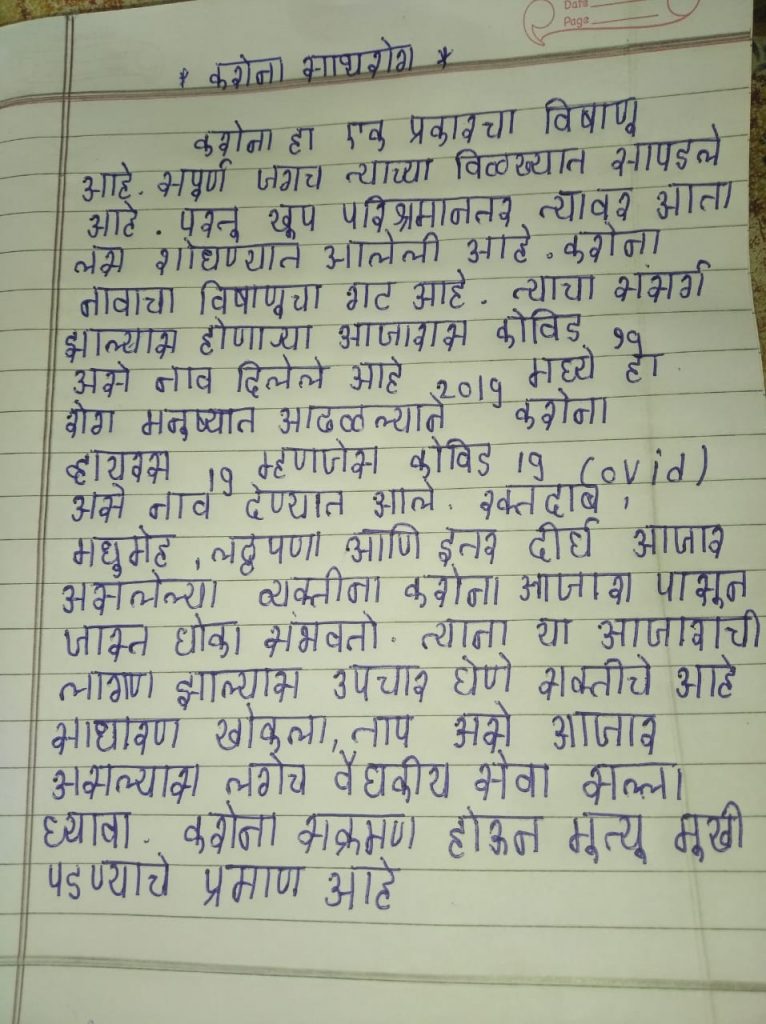 Date
Page
* करोना साथरोग *
करोना हा एक प्रकारचा विषाणू
आहे. सपूर्ण जगच त्याच्या विळख्यात सापडले
आहे. परतू खूप परिश्रमानतर त्यावर आता
लस शोधण्यात आलेली आहे. करोना
नावाचा विषाणूचा गट आहे. त्याचा संसर्ग
झाल्यास होणाऱ्या आजारास कोविड १९
असे नाव दिलेले आहे 2019 मध्ये हा
रोग मनुष्यात आढळल्याने करोना
व्हायरस 19 म्हणजेस कोविड 19 (ovid)
असे नाव देण्यात आले. रक्तदाब,
मधुमेह, लठ्ठपणा आणि इतर दीर्घ आजार
असलेल्या व्यक्तीना करोना आजारा पासून
जास्त धोका संभवतो. त्याना या आजाराची
लागण झाल्यास उपचार घेणे सक्तीचे आहे
साधारण खोकला, ताप असे आजार
असल्यास लगेच वैद्यकीय सेवा सल्ला
घ्यावा. करोना सक्रमण होऊन मृत्यू मूखी
पडण्याचे प्रमाण आहे